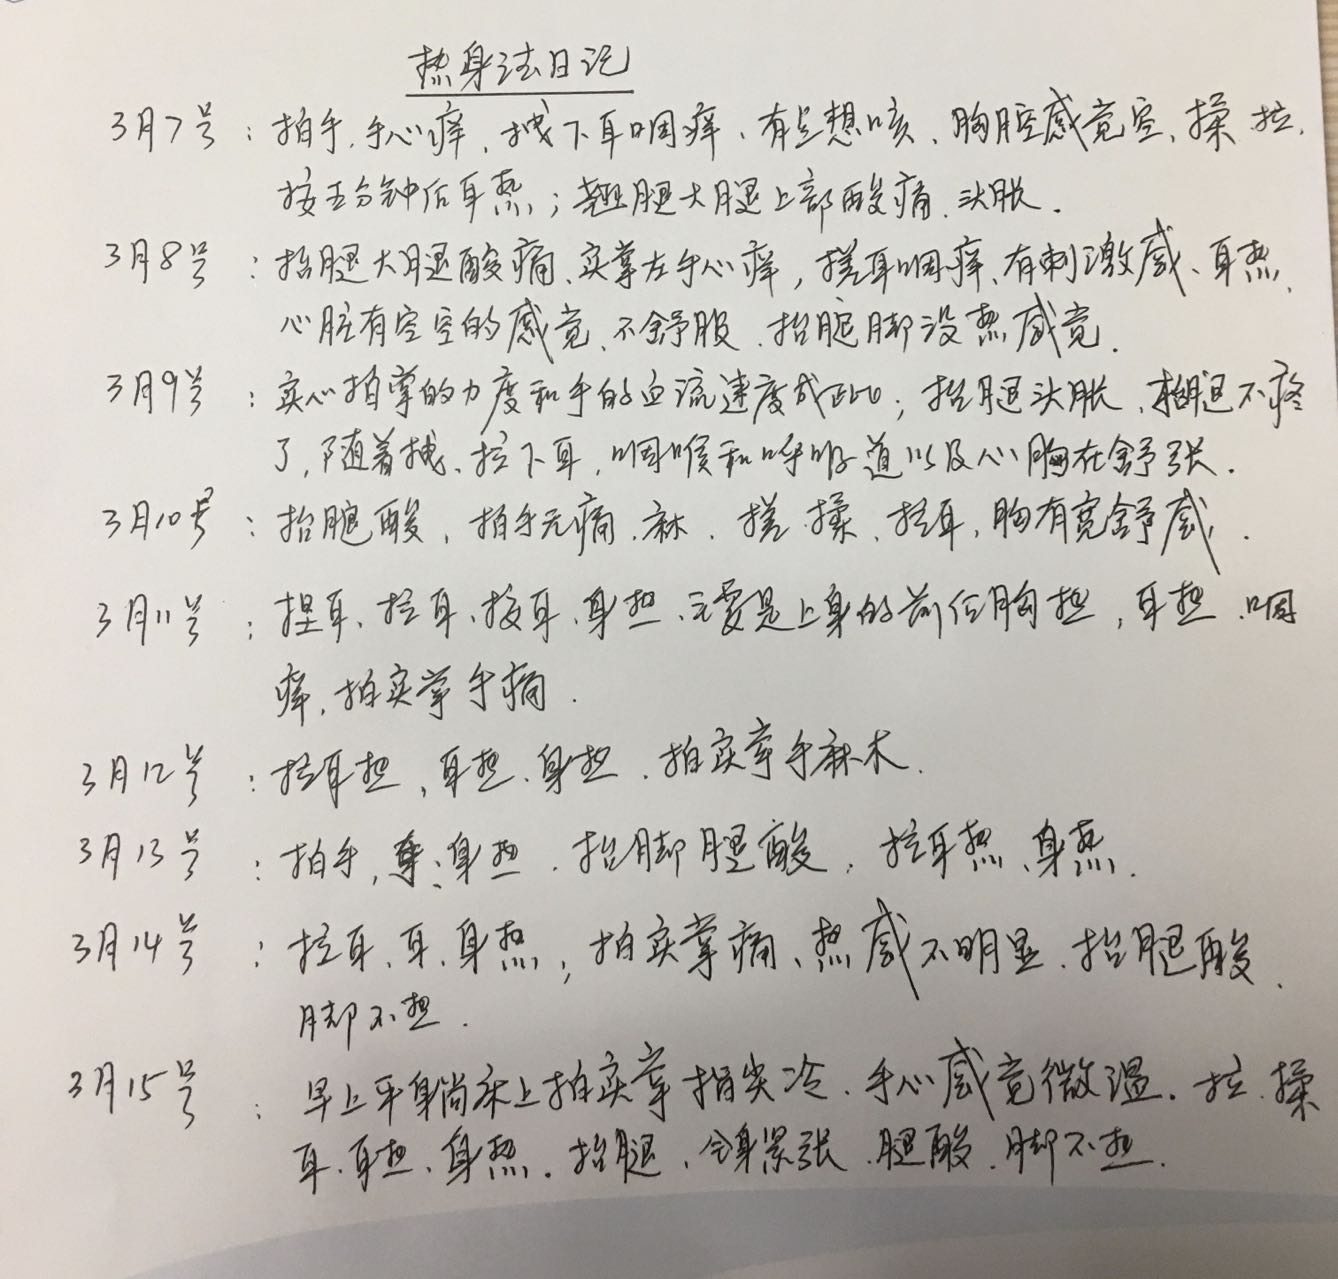 热身法日记
3月7号：拍手,手心痒、拽下耳咽痒、有点想咳、胸腔感觉空、揉、拉、
按五分钟后耳热；翘腿大腿上部酸痛、头胀.
3月8号：抬腿大腿酸痛、实掌左手心痒，搓耳咽痒、有刺激感、耳热、
心脏有空空的感觉、不舒服、抬腿脚没热感觉.
3月9号：实心拍掌的力度和手的血流速度成正比；抬腿头胀、腿不疼
了,随着拽、拉下耳,咽喉和呼吸道以及心胸在舒张.
3月10号：抬腿酸、拍手无痛、麻、搓、揉、拉耳,胸有宽舒感.
3月11号：捏耳、拉耳、按耳、身热、主要是上身的前位胸热，耳热、咽
痒,拍实掌手痛.
3月12号：拉耳热，耳热、身热、拍实掌手麻木.
3月13号：拍手,身热、抬脚腿酸、拉耳热、身热.
3月14号：拉耳、耳、身热，拍实掌痛、热感不明显、抬腿酸、
脚不热.
3月15号：早上平身躺床上拍实掌指尖冷、手心感觉微温.拉、揉
耳、耳热、身热.抬腿、全身紧张、腿酸、脚不热.